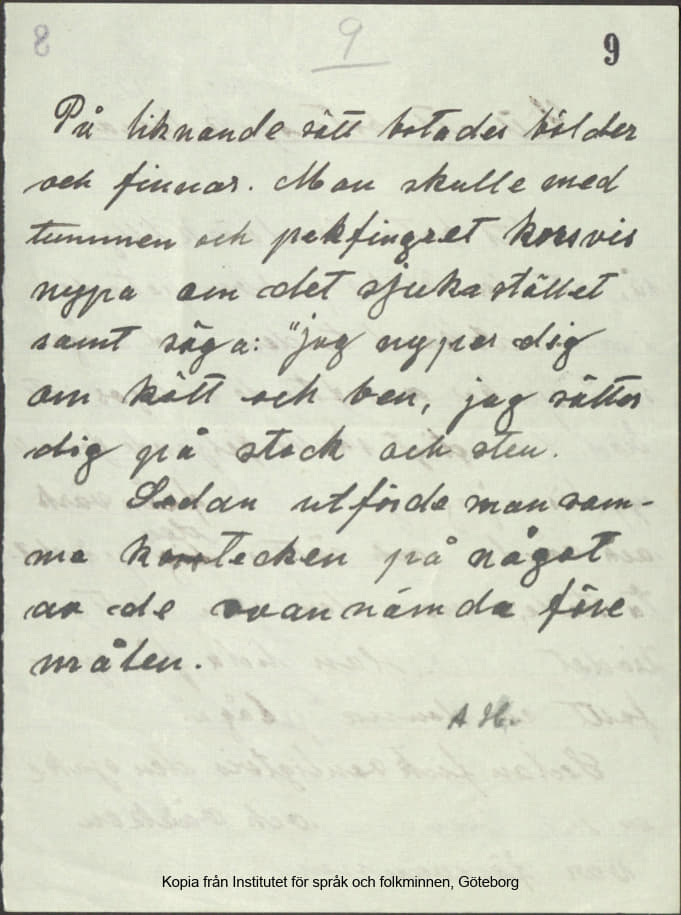 9
9
På liknande sätt botades bölder
och finnar. Man skulle med
tummen och pekfingret korsvis
nypa om det sjuka stället
samt säga: "jag nyper dig
om kött och ben, jag sätter
dig på stock och sten.
Sedan utförde man sam-
ma korstecken på något
av de ovannämda före
målen.
A H.
Kopia från Institutet för språk och folkminnen, Göteborg